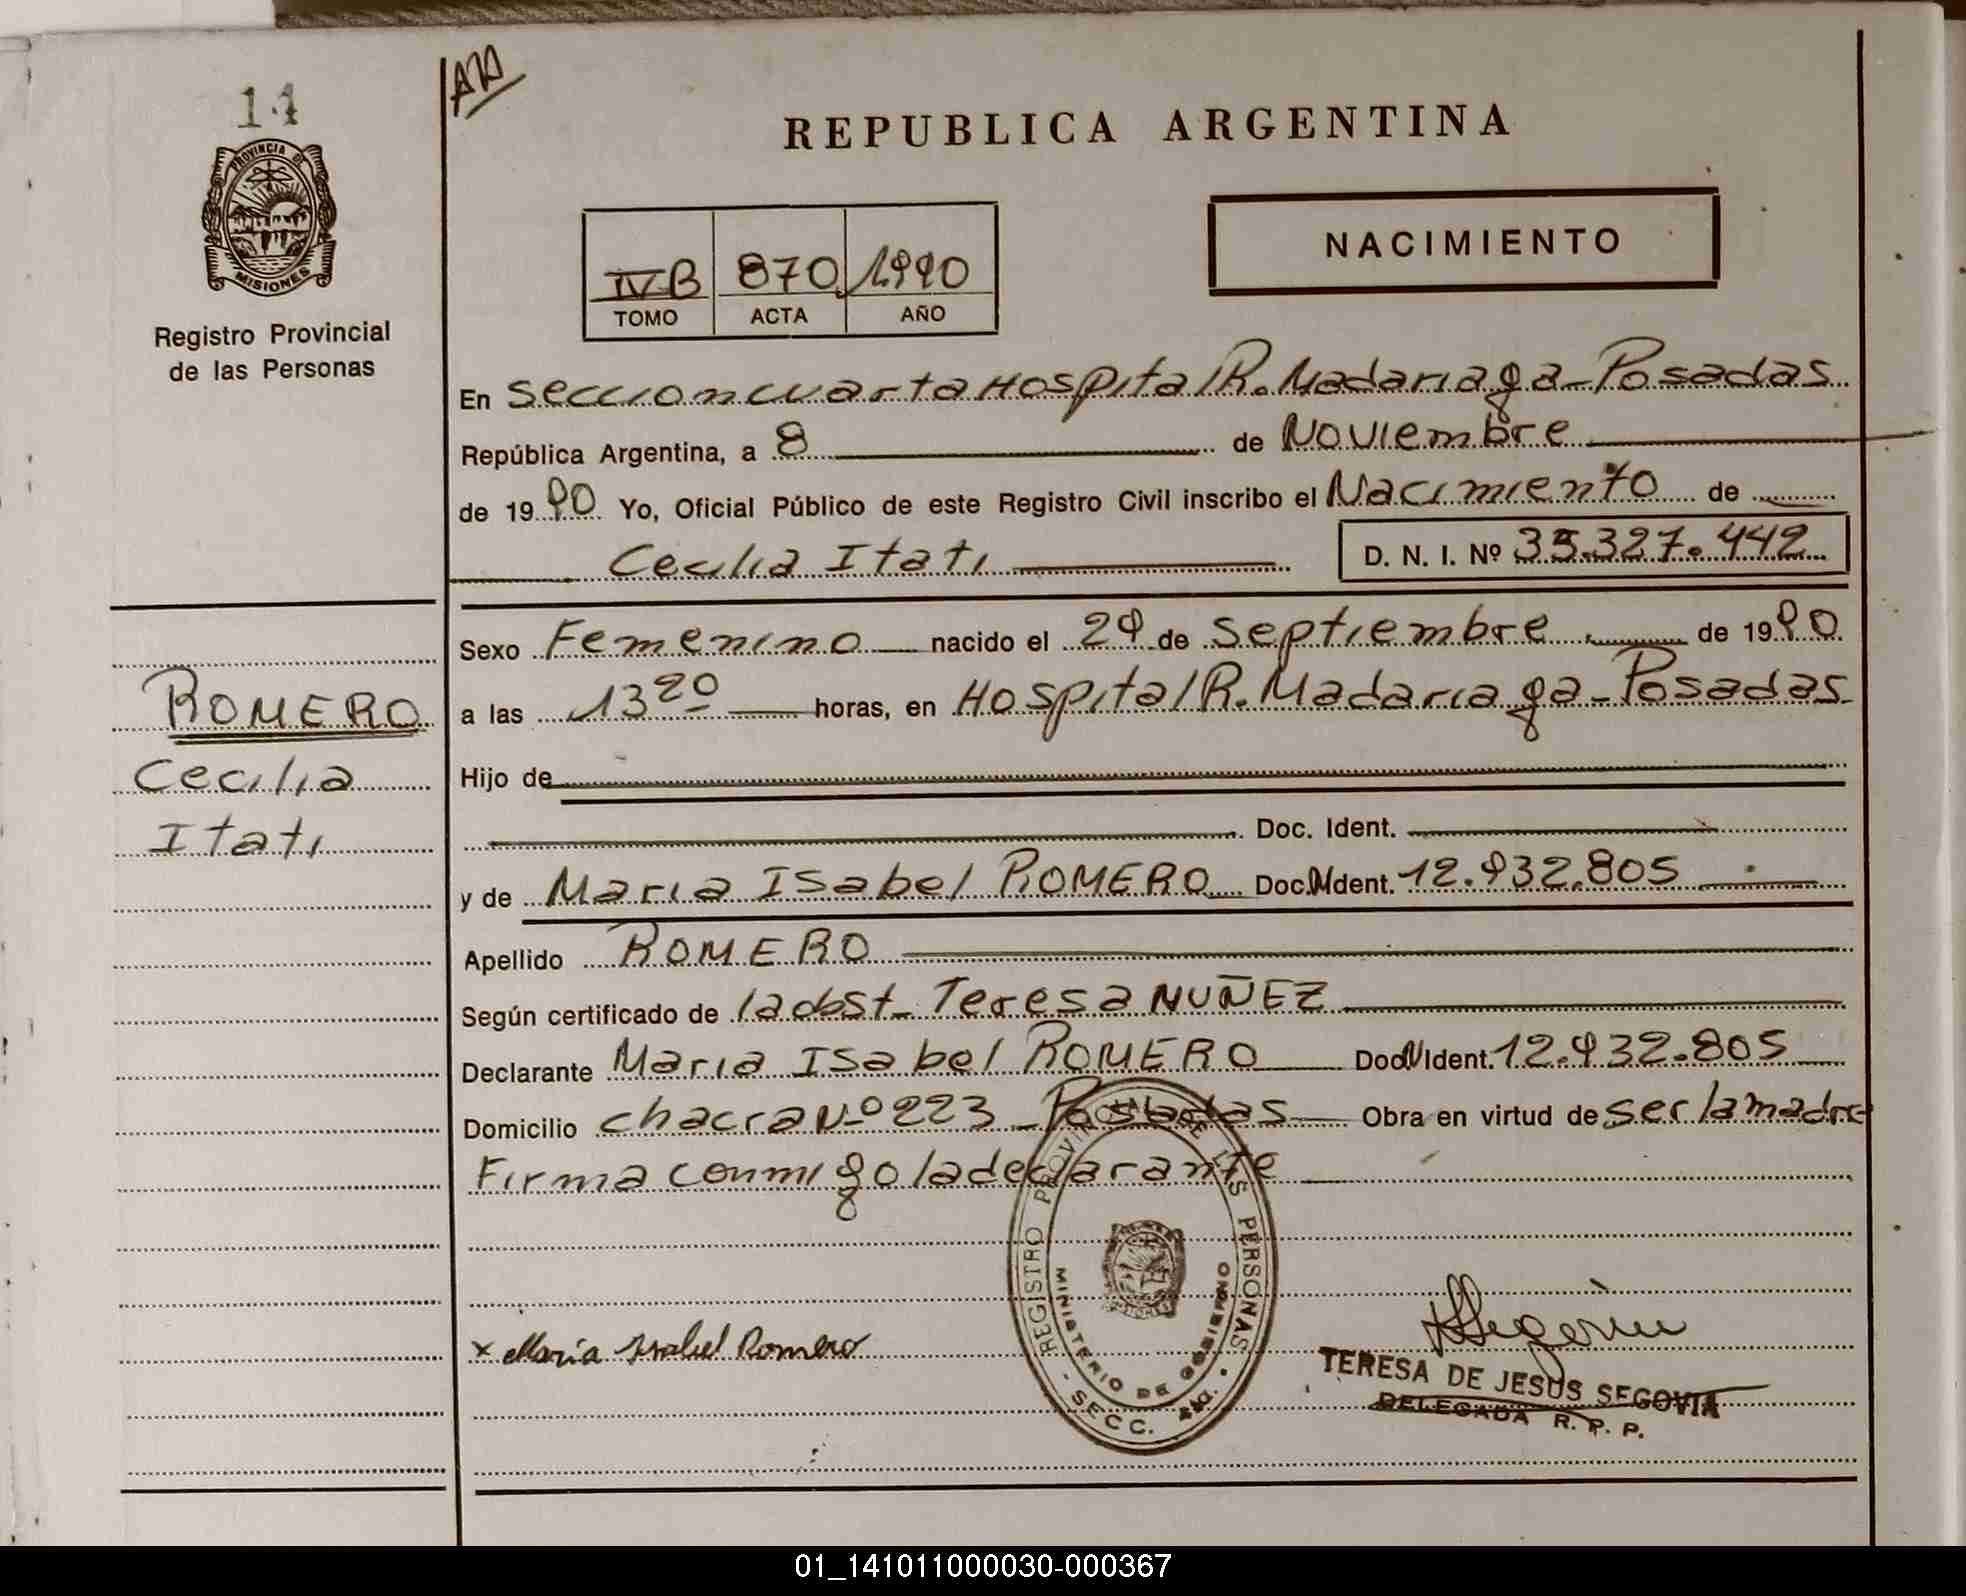 14
PROVINCIA DE
MISIONES
Registro Provincial
de las Personas
REPUBLICA ARGENTINA
IV B 870 1990
TOMO ACTA AÑO
NACIMIENTO
En Seccion cuarta Hospital R. Madariaga - Posadas
República Argentina, a 8 de Noviembre
de 1990 Yo, Oficial Público de este Registro Civil inscribo el Nacimiento de
Cecilia Itati D. N. I. Nº 35.327.442
Sexo Femenino nacido el 29 de Septiembre de 1990
a las 13 20 horas, en Hospital R. Madariaga - Posadas
Hijo de
Doc. Ident.
y de Maria Isabel ROMERO Doc. N Ident. 12.932.805
Apellido ROMERO
Según certificado de la obst. Teresa NUÑEZ
Declarante Maria Isabel ROMERO Doc N Ident. 12.932.805
Domicilio chacra Nº 223 - Posadas Obra en virtud de ser la madre
Firma conmigo la declarante
ROMERO
Cecilia
Itati
x Maria Isabel Romero
REGISTRO PROVINCIAL DE LAS PERSONAS
MINISTERIO DE GOBIERNO
SECC. 4ta.
TERESA DE JESUS SEGOVIA
DELEGADA R. P. P.
01_141011000030-000367